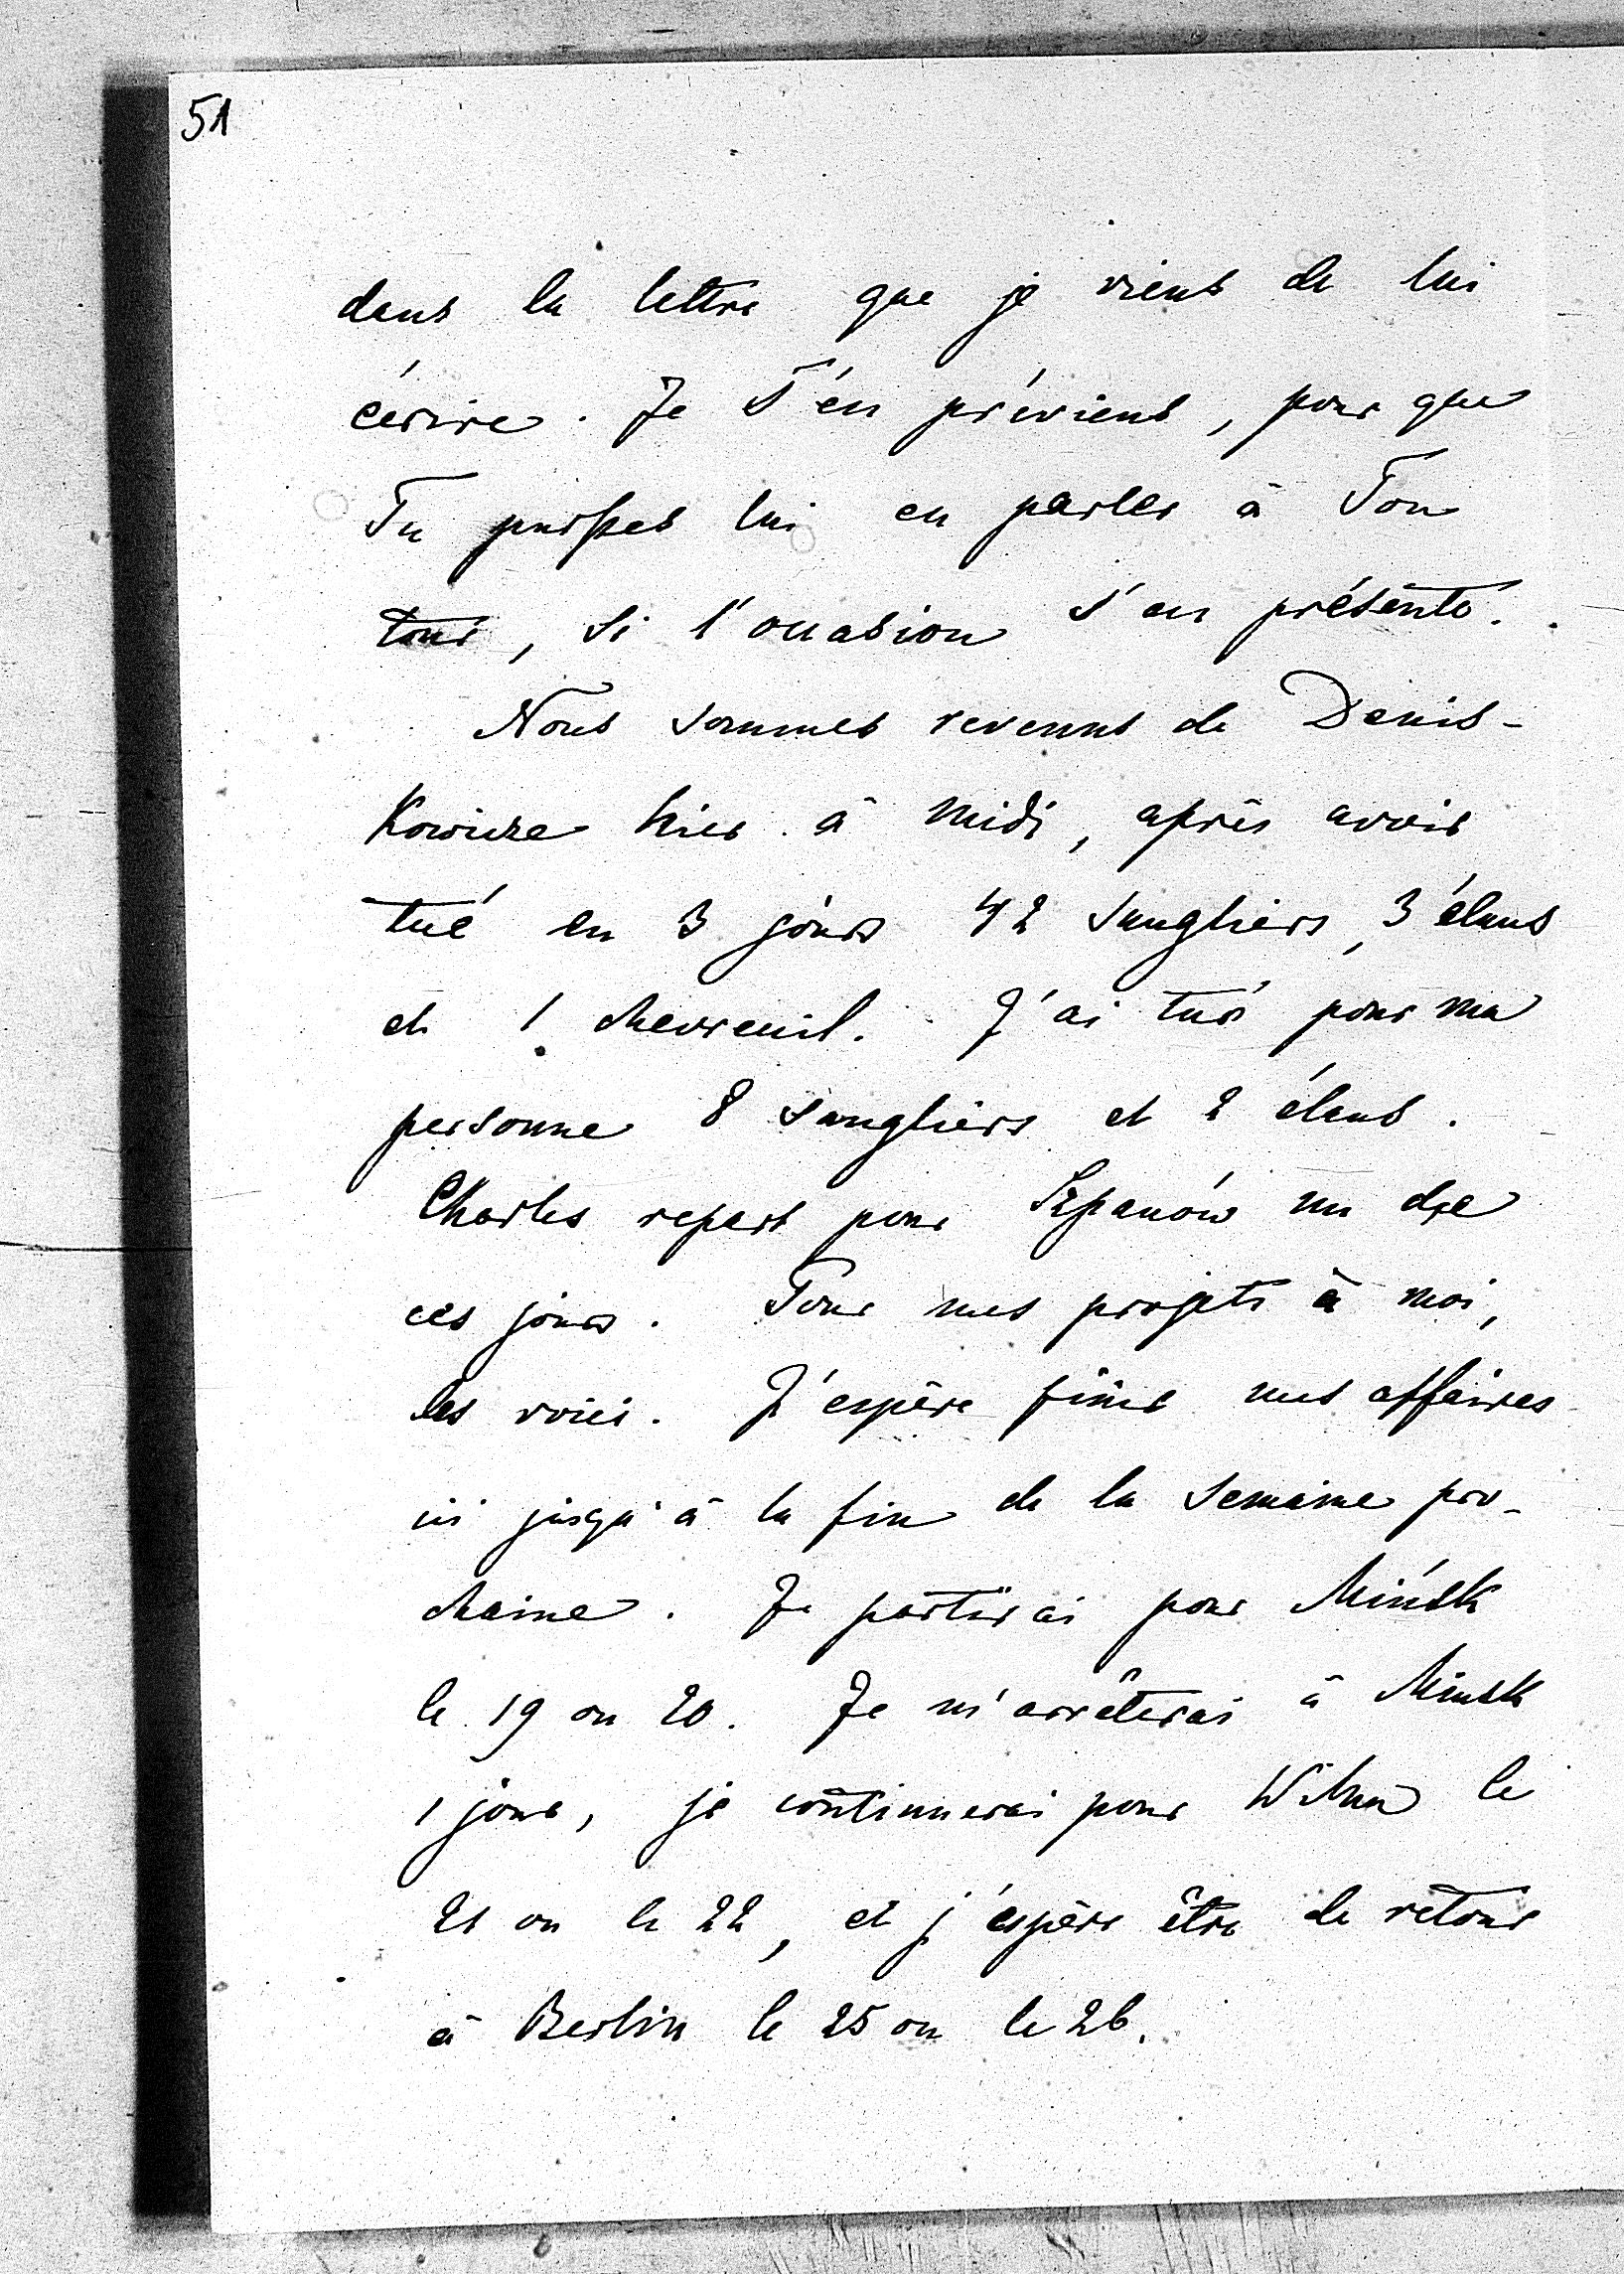 51
dans la lettre que je viens de lui
écrire. Je T'en préviens, pour que
Tu puisses lui en parler à Ton
tour, si l'occasion s'en présente.
Nous sommes revenus de Denis-
kowicze hier à midi, après avoir
tué en 3 jours 42 sangliers, 3 élans
et 1 chevreuil. J'ai tué pour ma
personne 8 sangliers et 2 élans.
Charles repart pour Szpanów un de
ces jours. Pour mes projets à moi,
les voici. J'espère finir mes affaires
ici jusqu'à la fin de la semaine pro-
chaine. Je partirai pour Mińsk
le 19 ou 20. Je m'arrêterai à Minsk
1 jour, je continuerai pour Wilna le
21 ou le 22, et j'espère être de retour
à Berlin le 25 ou le 26.